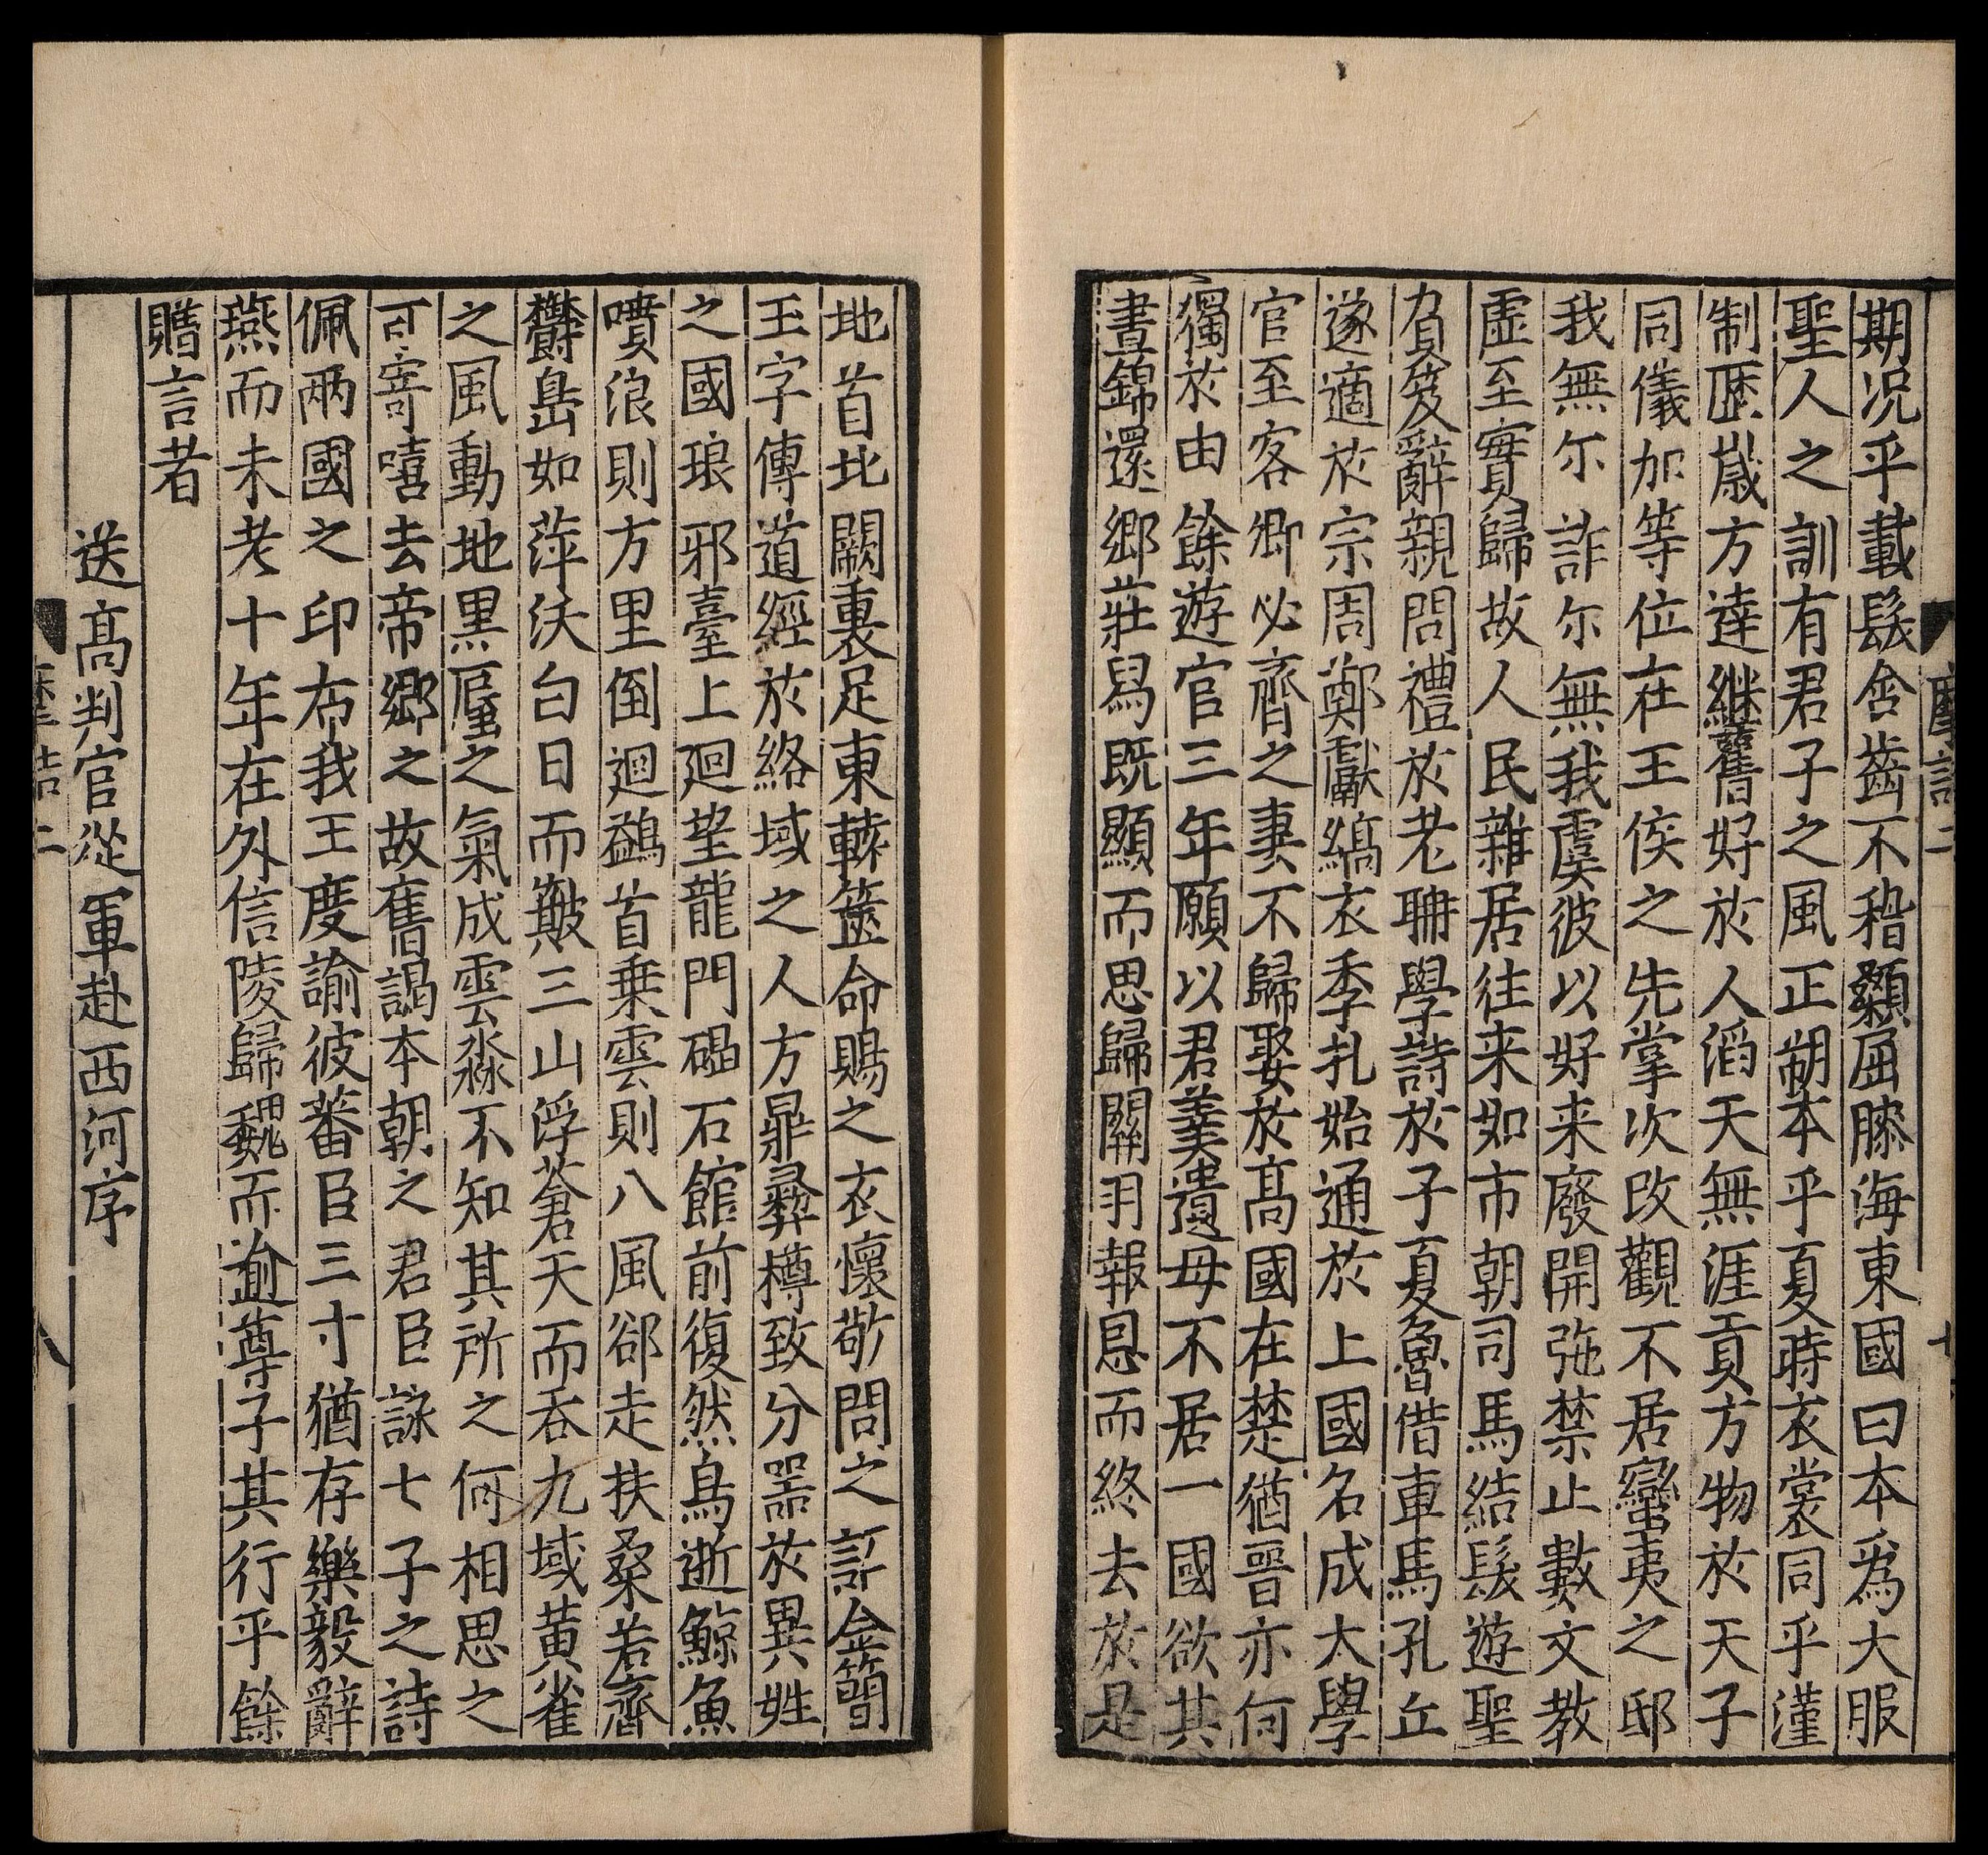 期况乎載髮含齒不稽顙屈膝海東國日本爲大服
聖人之訓有君子之風正朔本乎夏時衣裳同乎漢
制歷歲方達繼舊好於人滔天無涯貢方物於天子
同儀加等位在王侯之先掌次改觀不居蠻夷之邸
我無尔詐尔無我虞彼以好来廢開弛禁止敷文教
虛至實歸故人民雜居往来如市朝司馬結髮遊聖
負笈辭親問禮於老聃學詩於子夏魯借車馬孔丘
遂適於宗周鄭獻縞衣季札始通於上國名成太學
官至客卿必齊之妻不歸娶於高國在楚猶晉亦何
獨於由餘遊官三年願以君羹遺母不居一國欲其
晝錦還鄉莊舄既顯而思歸關羽報恩而終去於是
地首北闕裹足東轅篋命賜之衣懷敬問之詔金簡
玉字傳道經於絡域之人方鼎彝樽致分器於異姓
之國琅邪臺上廻望龍門碣石館前復然鳥逝鯨魚
噴浪則方里倒迴鷁首乗雲則八風郤走扶桑若齊
欝島如萍沃白日而簸三山浮蒼天而吞九域黄雀
之風動地黑蜃之氣成雲淼不知其所之何相思之
可寄嘻去帝鄉之故舊謁本朝之君臣詠七子之詩
佩兩國之印布我王度諭彼蕃臣三寸猶存樂毅辭
燕而未老十年在外信陵歸魏而逾尊子其行乎餘
贈言者
送高判官從軍赴西河序
摩詰二
摩詰二
八